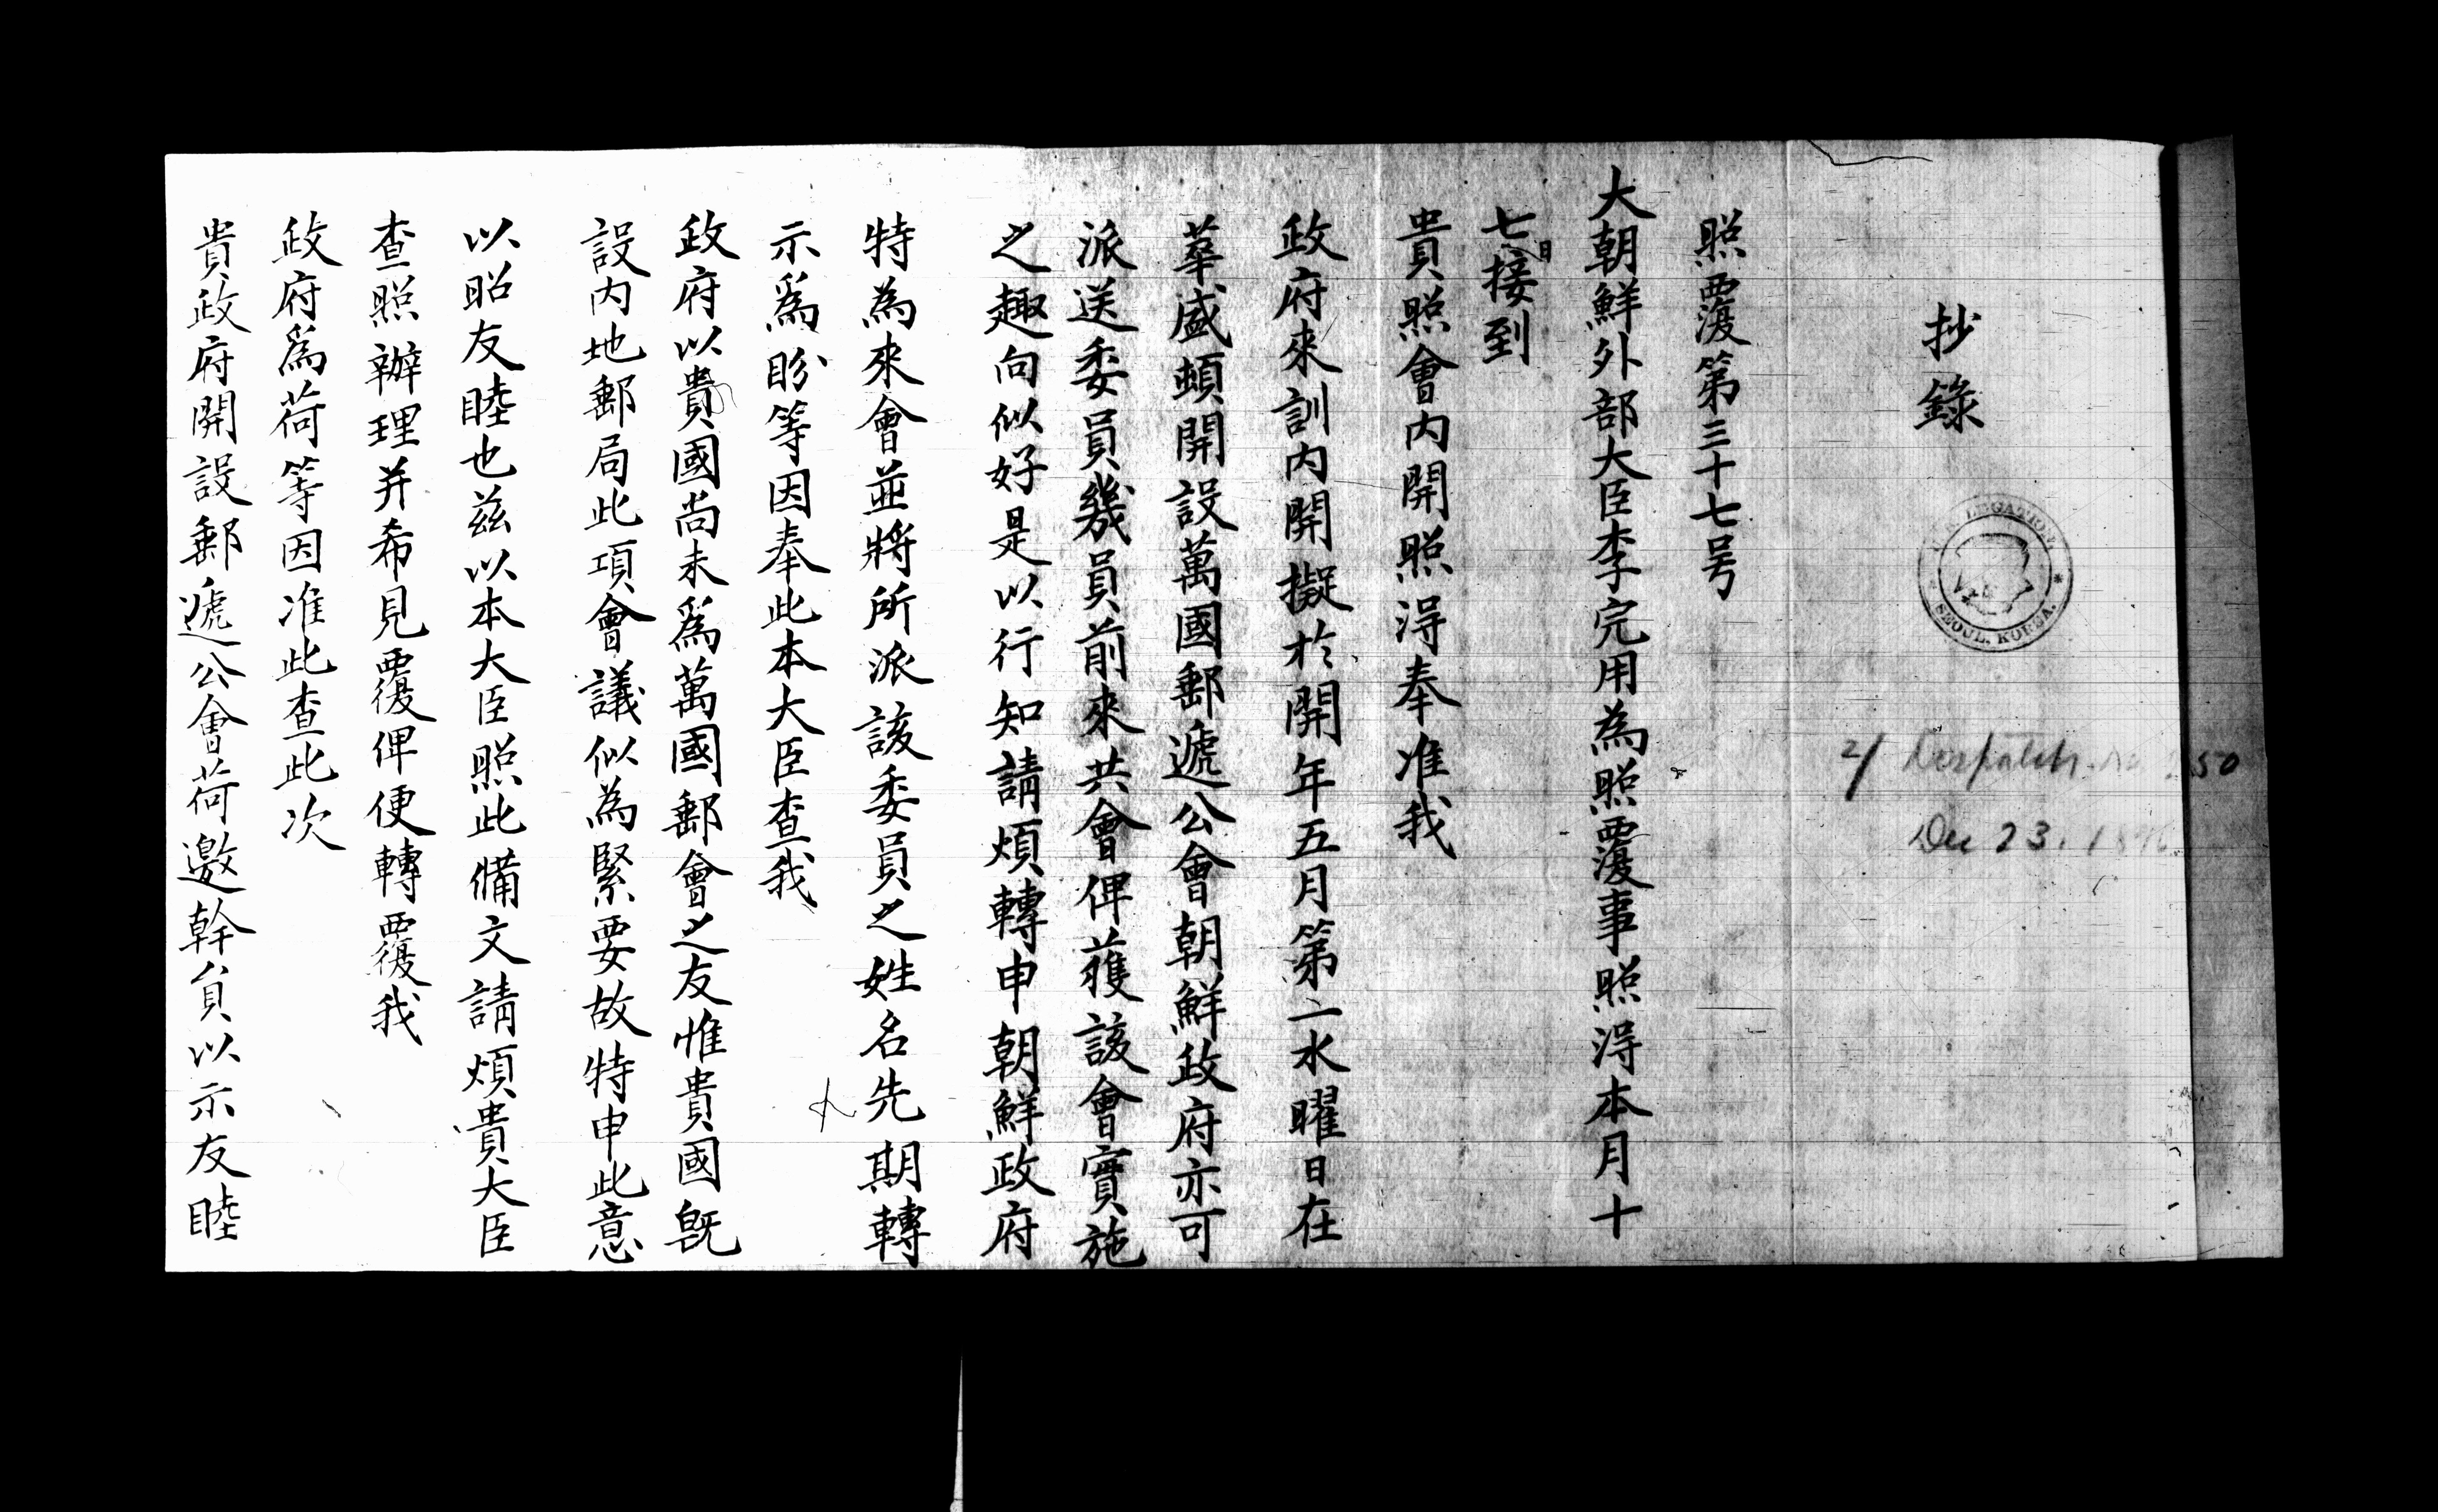 抄錄
LEGATION
SEOUL, KOREA.
2/ Despatch No. 50
Dec 23. 1896
照覆第三十七号
大朝鮮外部大臣李完用為照覆事照淂本月十
七日接到
貴照會內開照淂奉准我
政府來訓內開擬於開年五月第二水曜日在
華盛頓開設萬國郵遞公會朝鮮政府亦可
派送委員幾員前來共會俾獲該會實施
之趣向似好是以行知請煩轉申朝鮮政府
特為來會並將所派該委員之姓名先期轉
示爲盼等因奉此本大臣查我
政府以貴國尚未爲萬國郵會之友惟貴國旣
設內地郵局此項會議似為緊要故特申此意
以昭友睦也茲以本大臣照此備文請煩貴大臣
查照辦理幷希見覆俾便轉覆我
政府爲荷等因准此查此次
貴政府開設郵遞公會荷邀幹員以示友睦